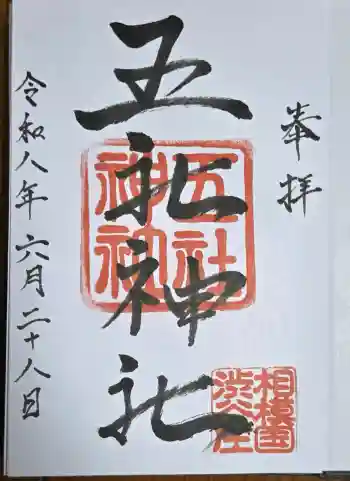 奉拝
五社神社
五社神社
相模国渋谷庄
令和八年六月二十八日